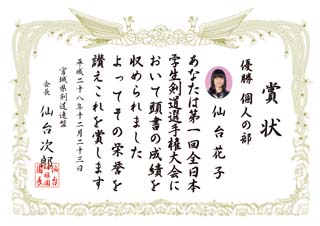 賞状
優勝 個人の部
仙台花子
あなたは第一回全日本
学生剣道選手権大会に
おいて頭書の成績を
収められました
よってその栄誉を
讃えこれを賞します
平成二十八年十二月二十三日
宮城県剣道連盟
会長 仙台次郎